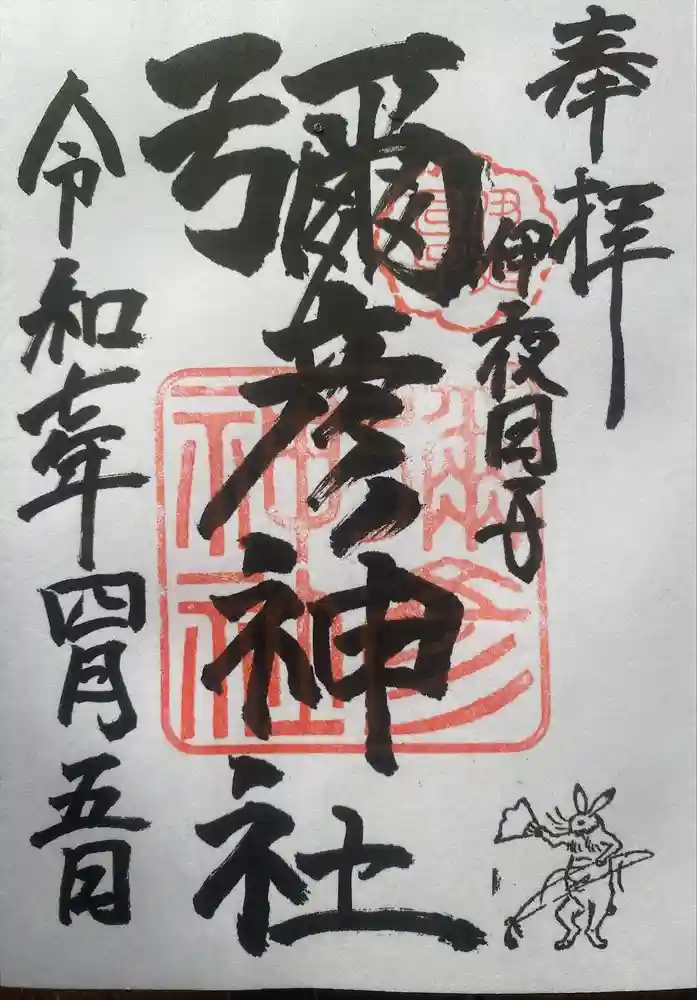 奉拝
伊夜日子
彌彦神社
彌彦神社
令和七年四月五日